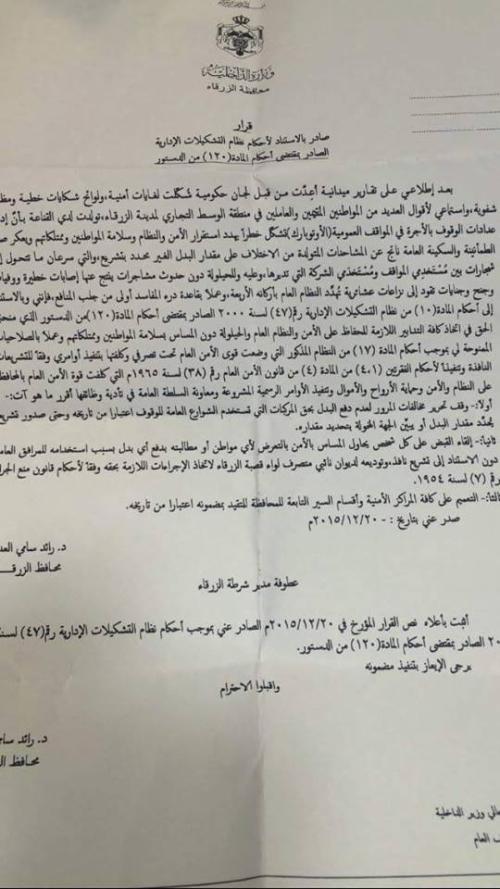 وزارة الداخلية
محافظة الزرقاء
قرار
صادر بالاستناد لأحكام نظام التشكيلات الإدارية
الصادر بمقتضى أحكام المادة (١٢٠) من الدستور
بعد إطلاعي على تقارير ميدانية أعِدّت من قبل لجان حكومية شُكّلت لغايات أمنية،ولوائح شكايات خطية
شفوية،واستماعي لأقوال العديد من المواطنين المقيمين والعاملين في منطقة الوسط التجاري لمدينة الزرقاء،تولدت لدي القناعة بأنّ
عدادات الوقوف بالأجرة في المواقف العمومية (الأوتوبارك)تشكّل خطراً يهدد استقرار الأمن والنظام وسلامة المواطنين وممتلكاتهم ويعكر
الطمأنينة والسكينة العامة ناتج عن المشاحنات المتولدة من الاختلاف على مقدار البدل الغير محدد بتشريع،والتي سرعان ما تتحول
شجارات بين مُستخدمي المواقف ومُستخدَمي الشركة التي تديرها،وعليه وللحيلولة دون حدوث مشاجرات ينتج عنها إصابات خطيرة
وجنح وجنايات تقود إلى نزاعات عشائرية تُهدّد النظام العام بأركانه الأربعة،وعملا بقاعدة درء المفاسد أولى من جلب المنافع،فإنني
إلى أحكام المادة (١٠) من نظام التشكيلات الإدارية رقم(٤٧) لسنة ٢٠٠٠ الصادر بمقتضى أحكام المادة (١٢٠)من الدستور الذي
الحق في اتخاذ كافة التدابير اللازمة للحفاظ على الأمن والنظام العام والحيلولة دون المساس بسلامة المواطنين وممتلكاتهم وعملا
الممنوحة لي بموجب أحكام المادة (١٧) من النظام المذكور التي وضعت قوى الأمن العام تحت تصرفي وكلفتها بتنفيذ أوامري وفقاً للتشريعات
النافذة وتنفيذاً لأحكام الفقرتين (١،٤) من المادة (٤) من قانون الأمن العام رقم (٣٨) لسنة ١٩٦٥م التي كلفت قوة الأمن العام
على النظام والأمن وحماية الأرواح والأموال وتنفيذ الأوامر الرسمية المشروعة ومعاونة السلطة العامة في تأدية وظائفها أقرر ما هو آت:-
أولا:- وقف تحرير مخالفات المرور لعدم دفع البدل بحق المركبات التي تستخدم الشوارع العامة للوقوف اعتبارا من تاريخه وحتى صدور
يُحدّد مقدار البدل أو يبيّن الجهة المخولة بتحديد مقداره.
ثانيا:- إلقاء القبض على كل شخص يحاول المساس بالأمن بالتعرض لأي مواطن أو مطالبته بدفع أي بدل بسبب استخدامه للمرافق
دون الاستناد إلى تشريع نافذ،وتوديعه لديوان نائبي متصرف لواء قصبة الزرقاء لاتخاذ الإجراءات اللازمة بحقه وفقا لأحكام قانون منع
رقم (٧) لسنة ١٩٥٤.
ثالثا:- التعميم على كافة المراكز الأمنية وأقسام السير التابعة للمحافظة للتقيد بمضمونه اعتبارا من تاريخه.
صدر عني بتاريخ: - ٢٠١٥/١٢/٢٠م
د. رائد سامي
محافظ
عطوفة مدير شرطة الزرقاء
أثبت بأعلاه نص القرار المؤرخ في ٢٠١٥/١٢/٢٠م الصادر عني بموجب أحكام نظام التشكيلات الإدارية رقم(٤٧)
الصادر بمقتضى أحكام المادة (١٢٠) من الدستور.
يرجى الإيعاز بتنفيذ مضمونه
واقبلوا الاحترام
د. رائد
محافظ
وزير الداخلية
العام